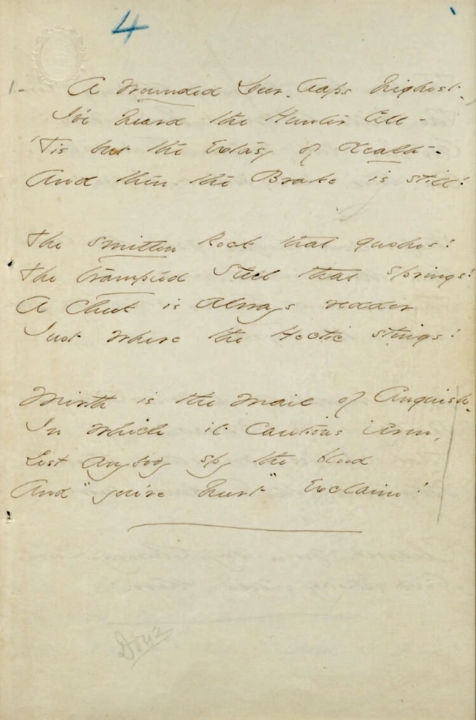 4
1- A Wounded Deer leaps highest -
I've heard the Hunter tell -
'Tis but the Extasy of Death -
And then the Brake is still!
The Smitten Rock that gushes!
The trampled Steel that springs!
A Cheek is Always redder
Just where the Hectic stings!
Mirth is the Mail of Anguish
In which it Cautious Arm,
Lest Anybody spy the blood
And "you're hurt" Exclaim!